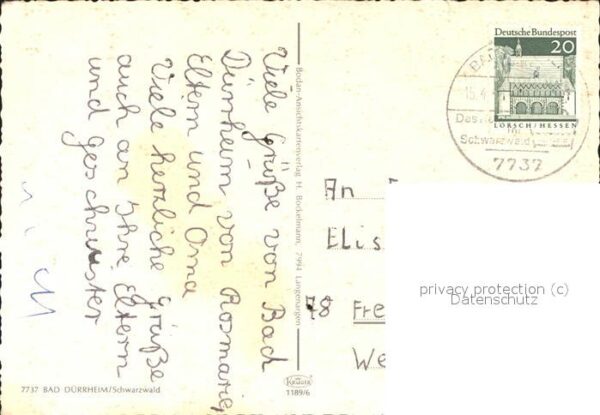 Viele Grüße von Bad
Dürrheim von Rosmarie,
Eltern und Oma
Viele herzliche Grüße
auch an Ihre Eltern
und Geschwister
7737 BAD DÜRRHEIM/Schwarzwald
Bodan-Ansichtskartenverlag H. Bockelmann, 7994 Langenargen
KRÜGER
1189/6
Deutsche Bundespost
20
LORSCH/HESSEN
15.4.
Schwarzwald
7737
An
Elis
78 Fre
We
privacy protection (c)
Datenschutz